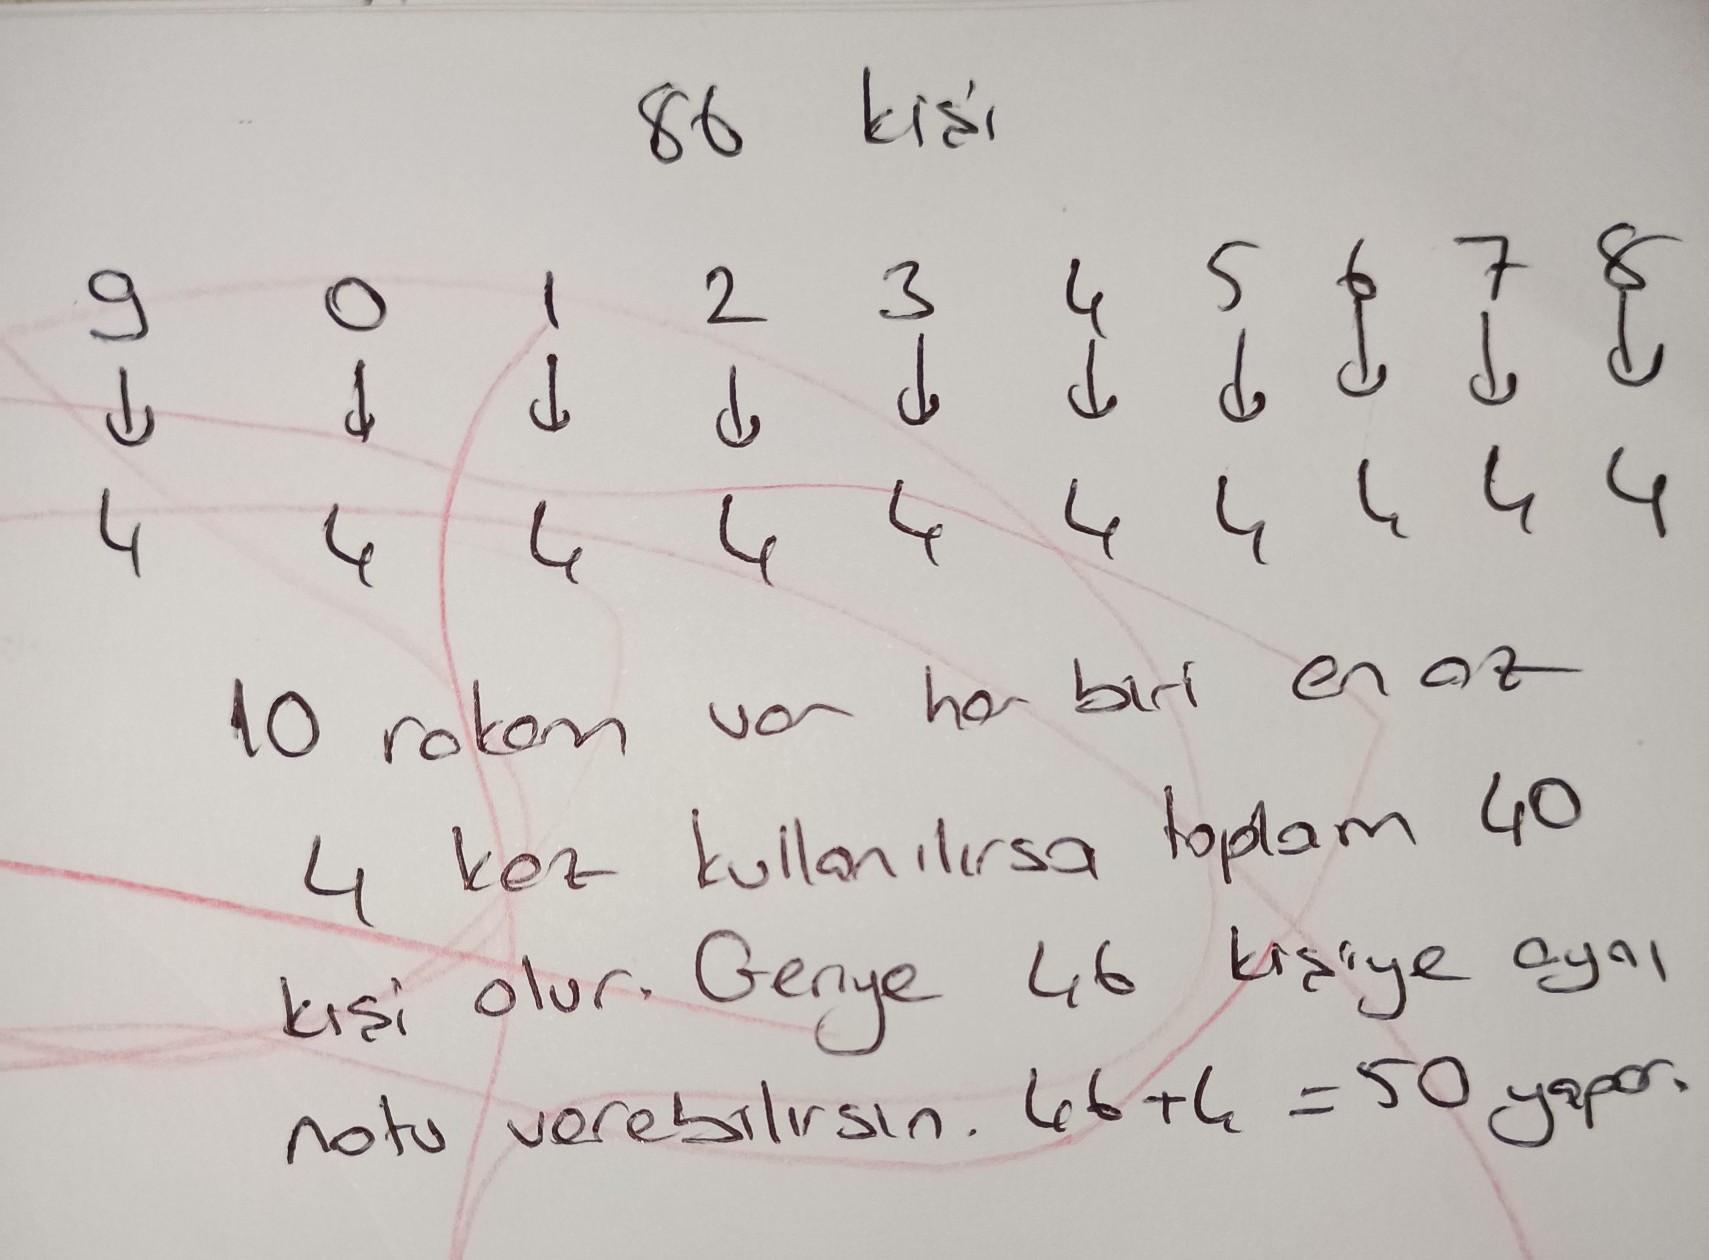 86 kişi
9 0 1 2 3 4 5 6 7 8
↓ ↓ ↓ ↓ ↓ ↓ ↓ ↓ ↓ ↓
4 4 4 4 4 4 4 4 4 4
10 rakam var her biri en az
4 kez kullanılırsa toplam 40
kişi olur. Geriye 46 kişiye aynı
notu verebilirsin. 46+4 = 50 yapar.